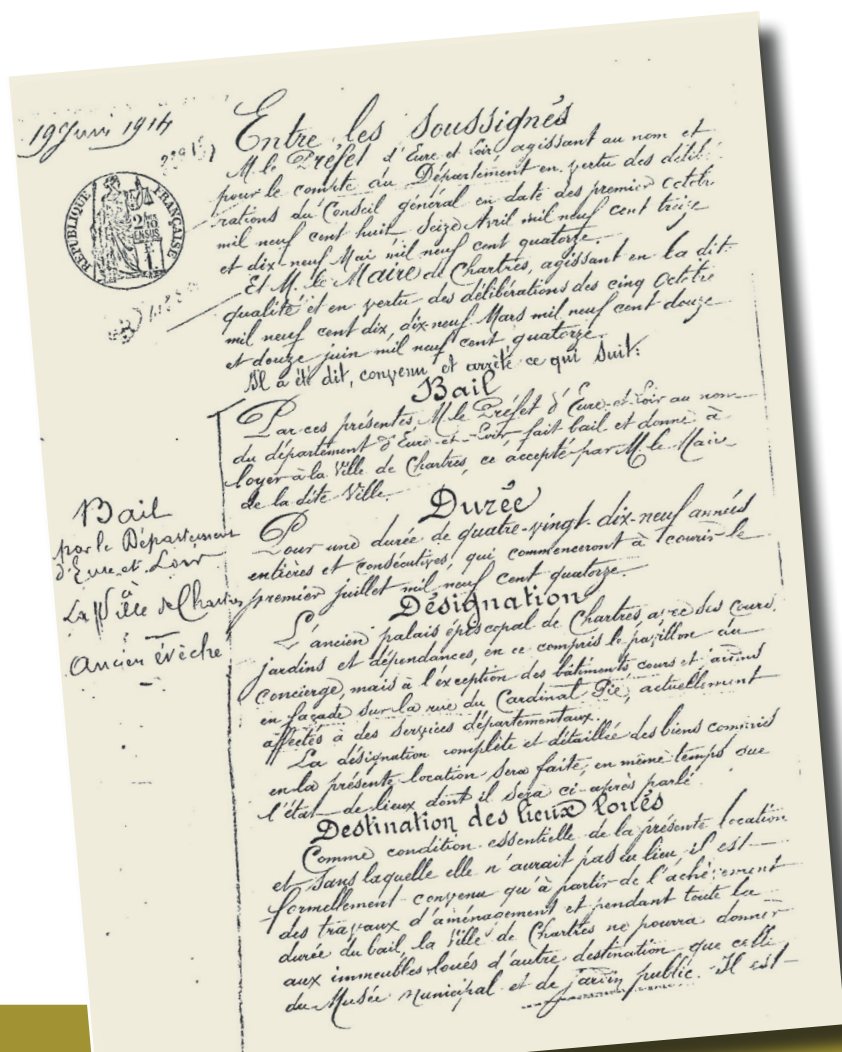 19 Juin 1914
RÉPUBLIQUE FRANÇAISE
2/10
EN SUS
1F
Entre les soussignés
M. le Préfet d'Eure et Loir, agissant au nom et
pour le compte du Département en vertu des délibé-
rations du Conseil général en date des premier Octobre
mil neuf cent huit, seize Avril mil neuf cent treize
et dix-neuf Mai mil neuf cent quatorze.
Et M. le Maire de Chartres, agissant en la dite
qualité et en vertu des délibérations des cinq Octobre
mil neuf cent dix, dix-neuf Mars mil neuf cent douze
et douze juin mil neuf cent quatorze.
Il a été dit, convenu et arrêté ce qui suit:
Bail
Par ces présentes, M. le Préfet d'Eure-et-Loir au nom
du département d'Eure-et-Loir, fait bail et donne à
loyer à la Ville de Chartres, ce accepté par M. le Maire
de la dite Ville.
Bail
par le Département
d'Eure-et-Loir
à
La Ville de Chartres
Ancien évêché
Durée
Pour une durée de quatre-vingt-dix-neuf années
entières et consécutives, qui commenceront à courir le
premier juillet mil neuf cent quatorze.
Désignation
L'ancien palais épiscopal de Chartres, avec ses cours,
jardins et dépendances, en ce compris le pavillon du
concierge, mais à l'exception des bâtiments cours et jardins
en façade sur la rue du Cardinal Pie, actuellement
affectés à des services départementaux.
La désignation complète et détaillée des biens compris
en la présente location sera faite, en même temps que
l'état de lieux dont il sera ci-après parlé.
Destination des lieux loués
Comme condition essentielle de la présente location
et sans laquelle elle n'aurait pas eu lieu, il est
formellement convenu qu'à partir de l'achèvement
des travaux d'aménagement et pendant toute la
durée du bail, la ville de Chartres ne pourra donner
aux immeubles loués d'autre destination que celle
du Musée municipal et de jardin public. Il est